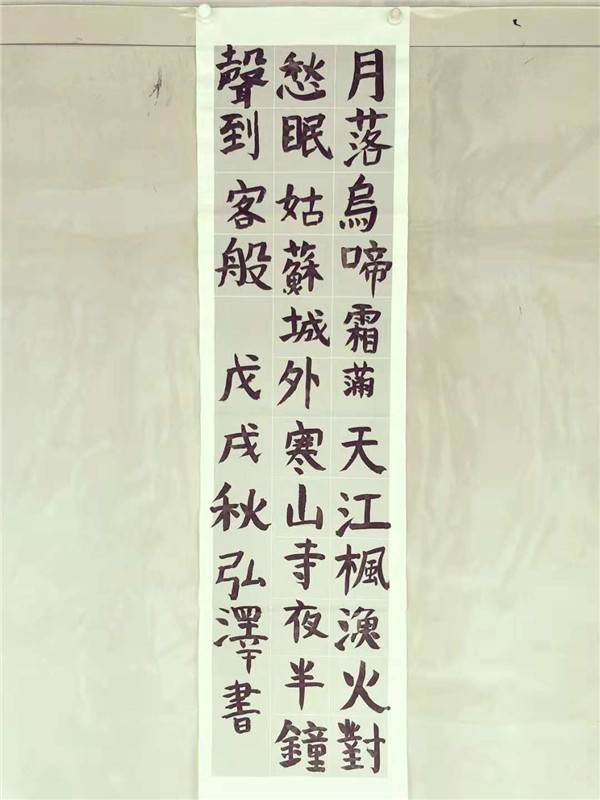 月落烏啼霜滿天江楓漁火對
愁眠姑蘇城外寒山寺夜半鐘
聲到客般戊戌秋弘澤書